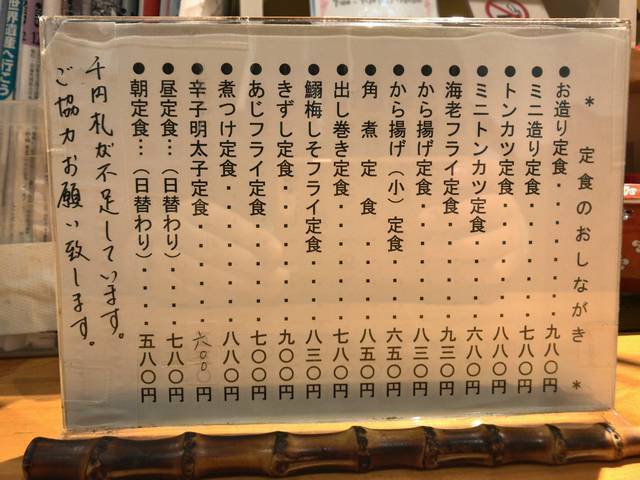 * 定食のおしながき *
●お造り定食・・・・・・九八〇円
●ミニ造り定食・・・・・七八〇円
●トンカツ定食・・・・・八八〇円
●ミニトンカツ定食・・・六八〇円
●海老フライ定食・・・・九三〇円
●から揚げ定食・・・・・八三〇円
●から揚げ（小）定食・・六五〇円
●角煮定食・・・・・八五〇円
●出し巻き定食・・・・・七八〇円
●鰯梅しそフライ定食・・八三〇円
●きずし定食・・・・・・九〇〇円
●あじフライ定食・・・・七〇〇円
●煮つけ定食・・・・・・八八〇円
●辛子明太子定食・・・・六〇〇円
●昼定食…（日替わり）・・七八〇円
●朝定食…（日替わり）・・五八〇円
千円札が不足しています。
ご協力お願い致します。
世界遺産へ行こう